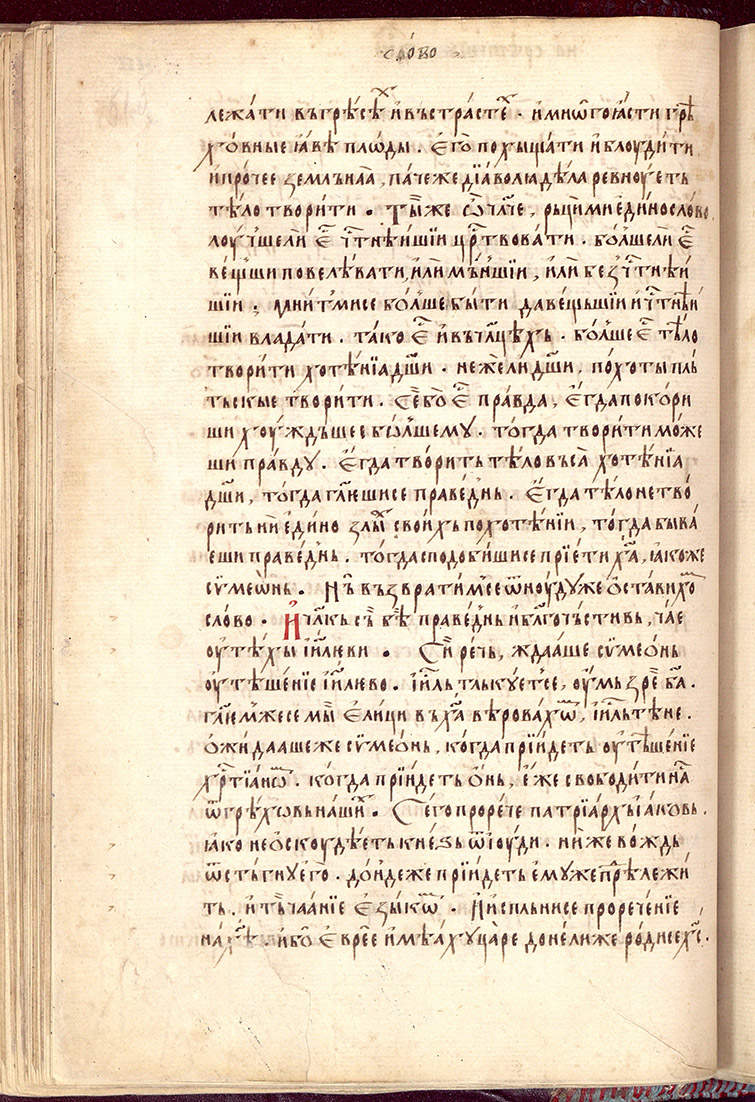 сло́во
лежа́ти въ грѣсѣ́х и въ страсте́х · и мнѡ́го ꙗ҆сти грѣ
хо́вные ꙗ҆вѣ плѡ́ды . Є҆го̀ похы́щати и҆ блоуди́ти
и҆ про́чее земльнаа̀, па́че же дїа́волꙗ дѣ́ла ревноу́еть
тѣ́ло твори́ти . Ты́ же ѽ чл҃че , рьци́ ми є҆ди́но сло́во
лоу́чше ли є҆сⷭ҇ чⷭ҇тнѣ́ишїи црⷭ҇твова́ти . бо́лше ли є҆сⷭ҇
ве́щши повелѣва́ти, и҆ли̏ мь́ншїи , и҆ли̏ бе́зчⷭ҇тнѣи
шїи ; мни́т ми се бо́лше бы́ти да ве́щьшїи и҆ чⷭ҇тнѣ́и
шїи влада́ти . та́ко є҆сⷭ҇ и҆ въ чл҃цѣхъ . бо́лше є҆сⷭ҇ тѣ́ло
твори́ти хотѣ́нїа дш҃и . не́же ли дш҃и , по́хоты пль
тьскые твори́ти . Се́ бо є҆сⷭ҇ пра́вда , є҆гда̀ покори́
ши хоу́ждьшее бо́лшему . тогда̀ твори́ти мо́же
ши пра́вду . Є҆гда̀ тво́рить тѣ́ло въса̀ хотѣ́нїа
дш҃и , тогда̀ гл҃ѥши се праве́днь . Є҆гда̀ тѣ́ло не тво́
рить ни є҆ди́но злы́х свои́хь похотѣ́нїи , тогда̀ быва́
еши праве́днь . тогда̀ сподо́биши се прїе́ти хⷭ҇а , ꙗ҆ко же
сѵмеѡ́нь . Нь̏ възврати́м се ѿноу́ду же ѡ҆ста́вихѡм
сло́во . И҆ чл҃кь съ̏ бѣ̏ праве́днь и҆ бл҃гочъсти́вь , ча́е
оу҆тѣ́хы і҆и҃лѥви . Си́ рѣчь , ждаа́ше сѵмеѡ́нь
оу҆тѣше́нїе і҆и҃лѥво . і҆и҃ль тлькуе́т се , оу҆́мь зре́ б҃а .
гл҃ем же се мы̏ є҆ли́ци въ хⷭ҇а вѣ́ровахѡм , і҆и҃льтѣне .
ѡ҆жидаа́ше же сѵмеѡ́нь , когда̀ прїи́деть оу҆тѣше́нїе
хрⷭ҇тїа́нѡм . когда̀ прїи́деть ѡ҆́нь , є҆́же свободи́ти на́с
ѿ грѣхѡ́вь на́ших . Сего̀ прорече патрїа́рхь і҆а́ковь .
ꙗ҆ко не ѡ҆скоудѣ́еть кне́зь ѿ і҆оу́ди . ни́ же во́ждь
ѿ стъ́гну є҆го̀ . до́ндеже прїи́деть є҆му́же прѣлежи́
ть . и҆ тъ̏ ча́анїе є҆зы́кѡм . И҆ испльни се проре́ченїе
на хⷭ҇ѣ . и҆бо̏ є҆вре́е и҆мѣа́ху ца́ре доне́лиже роди́ се хⷭ҇ .